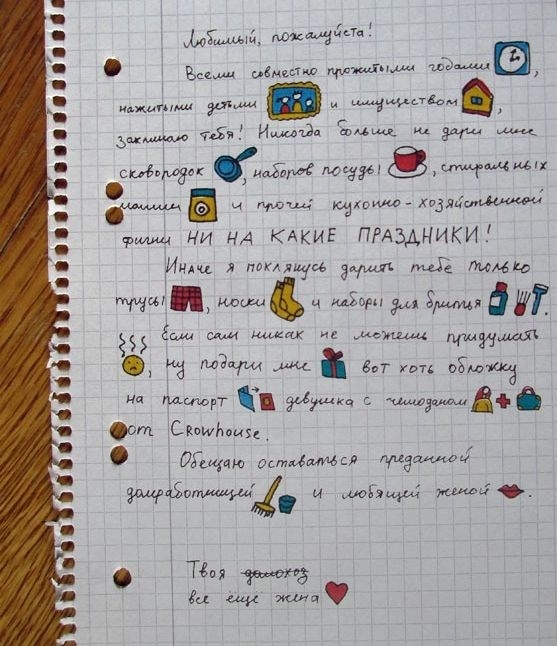 Любимый, пожалуйста!
Всеми совместно прожитыми годами,
нажитыми детьми и имуществом,
заклинаю тебя! Никогда больше не дари мне
сковородок, наборов посуды, стиральных
машин и прочей кухонно-хозяйственной
фигни НИ НА КАКИЕ ПРАЗДНИКИ!
Иначе я поклянусь дарить тебе только
трусы, носки и наборы для бритья.
Если сам никак не можешь придумать
, ну подари мне вот хоть обложку
на паспорт девушка с чемоданом
от Crowhouse.
Обещаю оставаться преданной
домработницей и любящей женой.
Твоя домохоз
все ещё жена